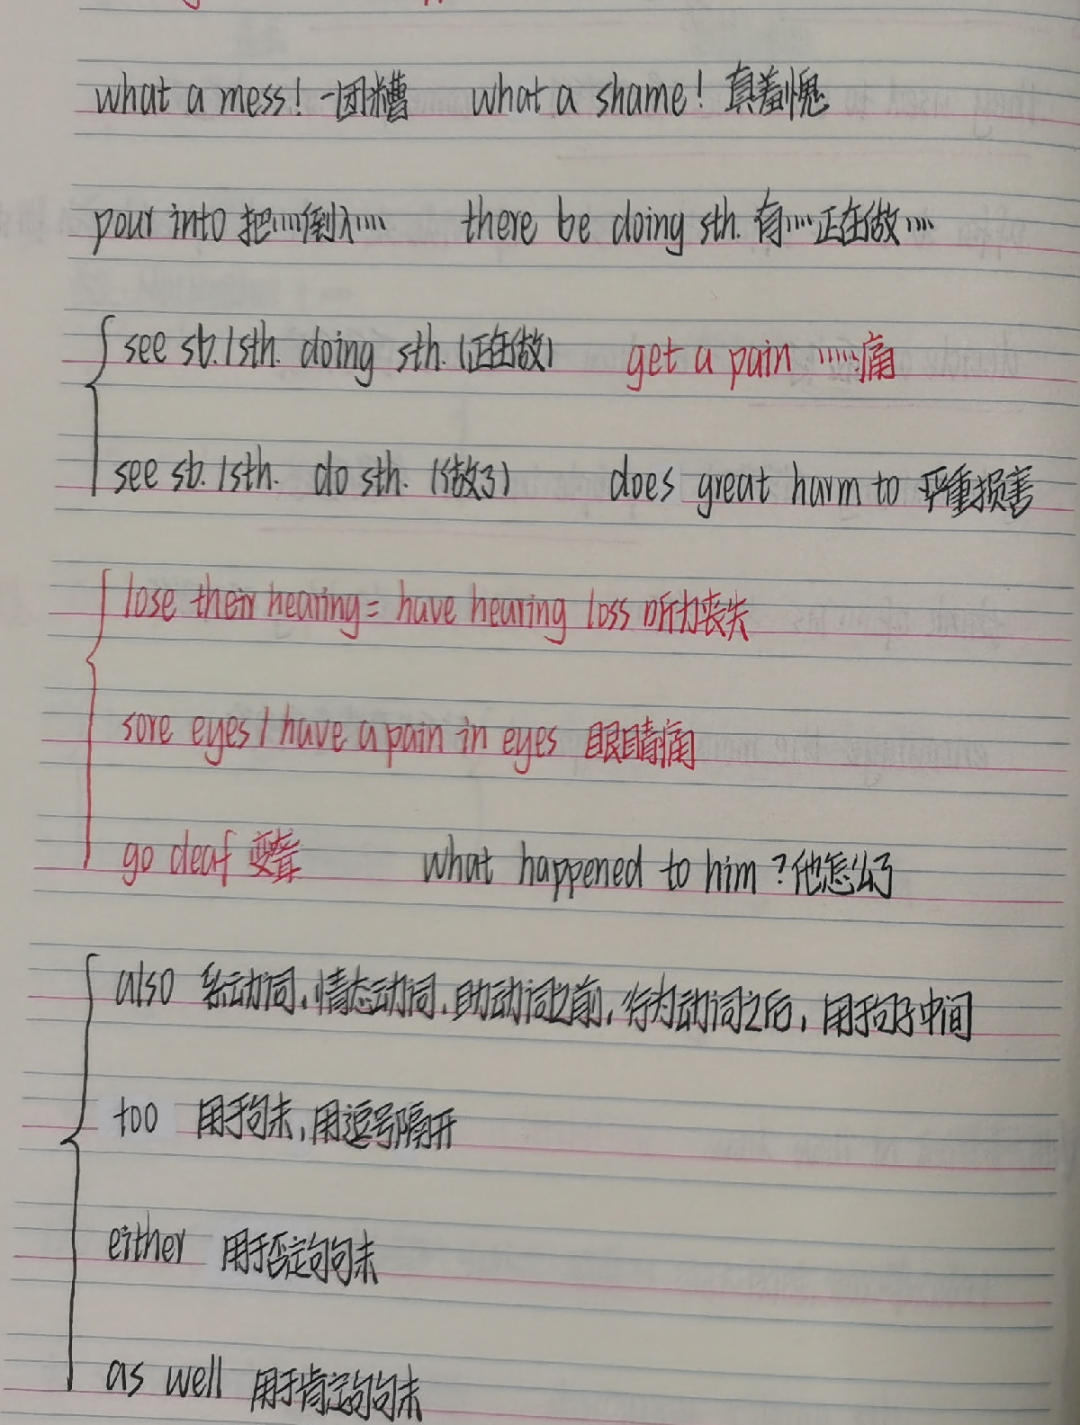 what a mess! 一团糟 what a shame! 真羞愧
pour into 把……倒入…… there be doing sth. 有……正在做……
see sb./sth. doing sth. (正在做) get a pain ……痛
see sb./sth. do sth. (做了) does great harm to 严重损害
lose their hearing = have hearing loss 听力丧失
sore eyes / have a pain in eyes 眼睛痛
go deaf 变聋 what happened to him? 他怎么了
also 系动词,情态动词,助动词之前,行为动词之后,用于句子中间
too 用于句末,用逗号隔开
either 用于否定句句末
as well 用于肯定句句末